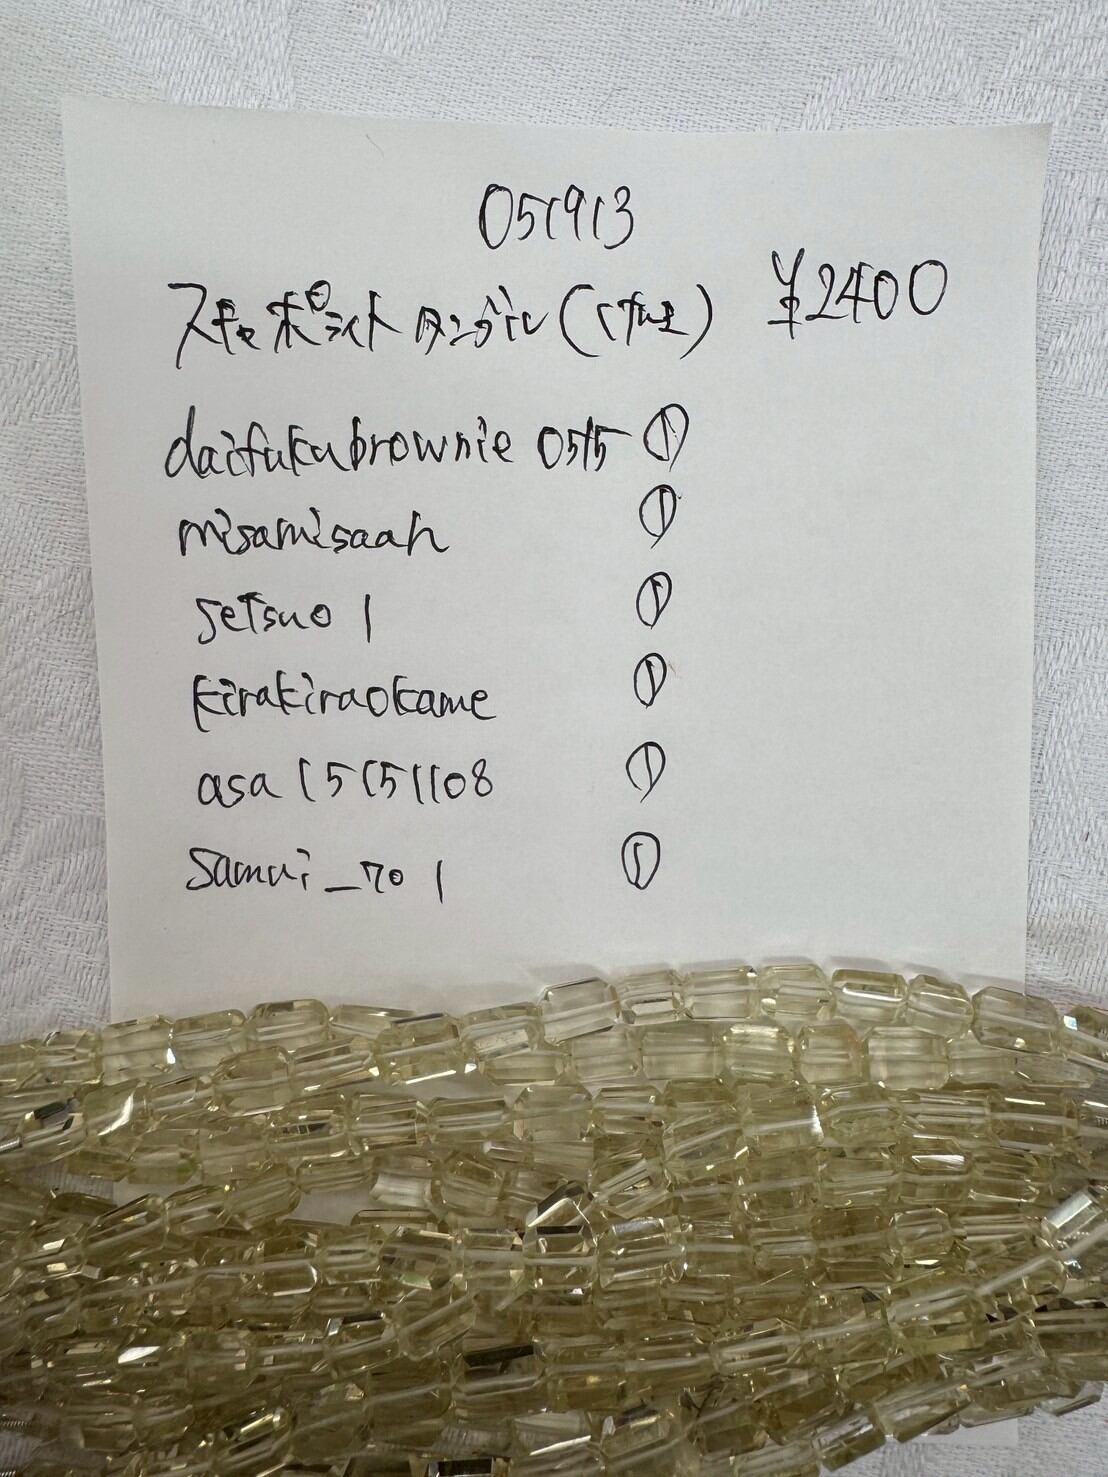 051913
スキャポライトタンブル ¥2400
daifukubrownie 0515 ①
misamisaah ①
setsuo1 ①
kirakiraokame ①
asa15151108 ①
samui_701 ①